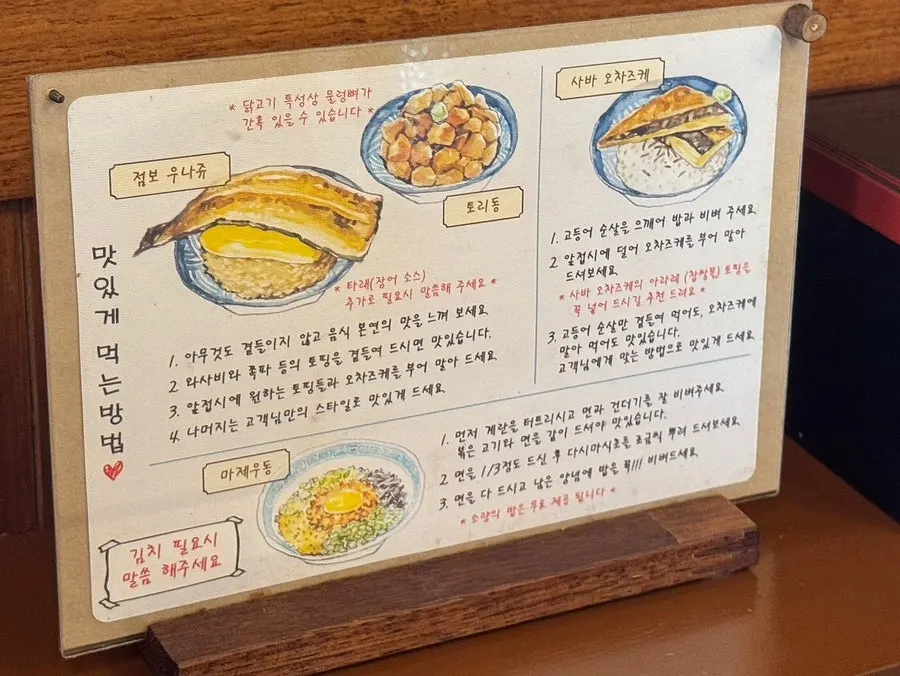 맛있게 먹는방법♥
* 닭고기 특성상 물렁뼈가
간혹 있을 수 있습니다 *
점보 우나쥬
토리동
* 타래(장어 소스)
추가로 필요시 말씀해 주세요 *
1. 아무것도 곁들이지 않고 음식 본연의 맛을 느껴 보세요.
2. 와사비와 쪽파 등의 토핑을 곁들여 드시면 맛있습니다.
3. 앞접시에 원하는 토핑들과 오차즈케를 부어 말아 드세요.
4. 나머지는 고객님만의 스타일로 맛있게 드세요.
사바 오차즈케
1. 고등어 순살을 으깨어 밥과 비벼 주세요.
2. 앞접시에 덜어 오차즈케를 부어 말아
드셔보세요.
* 사바 오차즈케의 아라레 (찹쌀볼) 토핑을
꼭 넣어 드시길 추천 드려요 *
3. 고등어 순살만 곁들여 먹어도, 오차즈케에
말아 먹어도 맛있습니다.
고객님에게 맞는 방법으로 맛있게 드세요.
마제우동
1. 먼저 계란을 터트리시고 면과 건더기를 잘 비벼주세요.
볶은 고기와 면을 같이 드셔야 맛있습니다.
2. 면을 1/3정도 드신 후 다시마식초를 조금씩 뿌려 드셔보세요.
3. 면을 다 드시고 남은 양념에 밥을 꼭!!! 비벼드세요.
* 소량의 밥은 무료 제공 됩니다 *
김치 필요시
말씀 해주세요